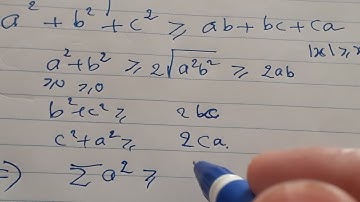 a² + b² + c² ≥ ab + bc + ca
|x| ≥ x
a² + b² ≥ 2√a²b² ≥ 2ab
≥0 ≥0
b² + c² ≥ 2bc
c² + a² ≥ 2ca.
⇒ Σa² ≥